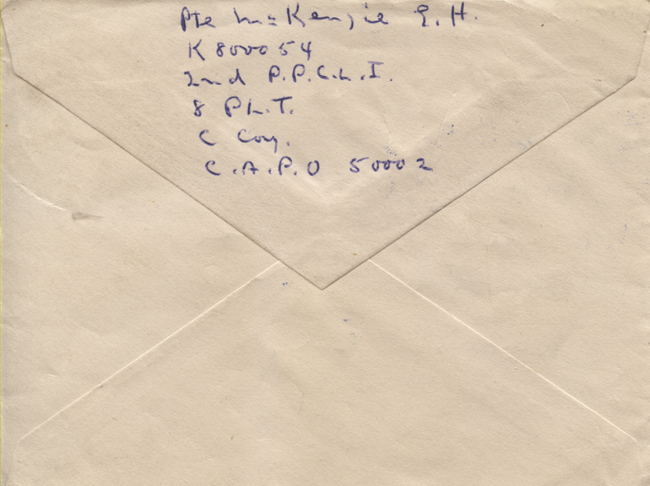 Pte McKenzie G.H.
K 800054
2nd P.P.C.L.I.
8 PL.T.
C Coy.
C.A.P.O 50002